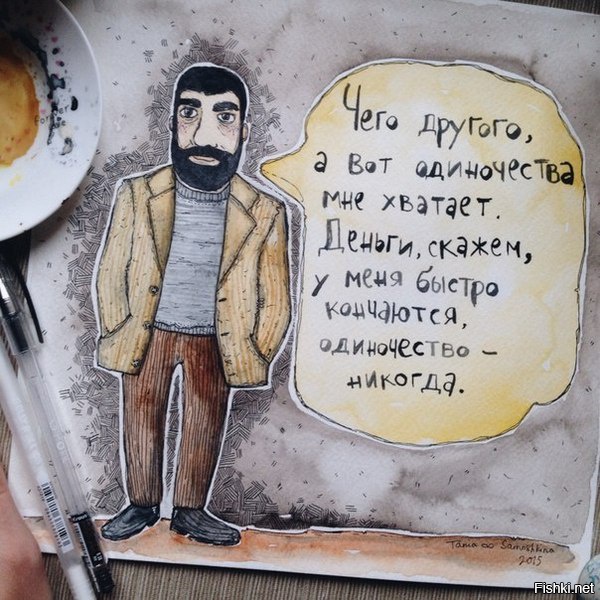 Чего другого,
а вот одиночества
мне хватает.
Деньги, скажем,
у меня быстро
кончаются,
одиночество –
никогда.
Tania Samoshkina
2015
Fishki.net